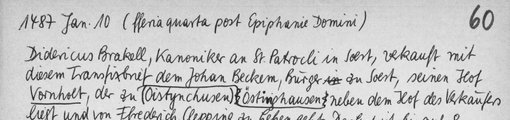 1487 Jan. 10 (fferia quarta post Epiphanie Domini) 60
Didericus Brakell, Kanoniker an St Patrocli in Soest, verkauft mit
diesem Transfixbrief dem Johan Beckem, Bürger zu Soest, seinen Hof
Vornholt, der zu (Oistynchusen) {Östinghausen} neben dem Hof des Verkäufers
liegt und von